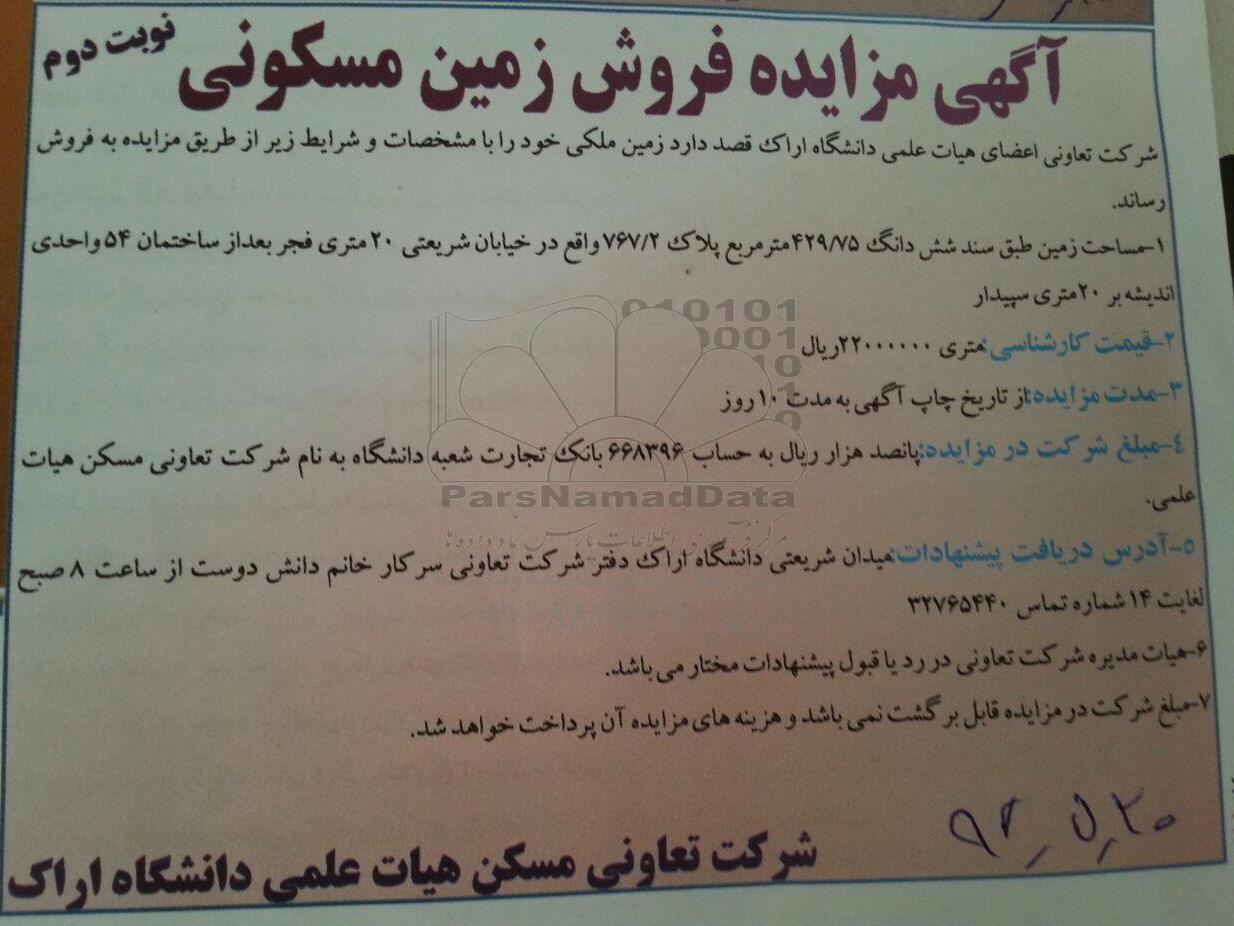 آگهی مزایده فروش زمین مسکونی
نوبت دوم
شرکت تعاونی اعضای هیات علمی دانشگاه اراک قصد دارد زمین ملکی خود را با مشخصات و شرایط زیر از طریق مزایده به فروش
رساند.
۱-مساحت زمین طبق سند شش دانگ ۴۲۹/۷۵مترمربع پلاک ۷۶۷/۲ واقع در خیابان شریعتی ۲۰ متری فجر بعداز ساختمان ۵۴ واحدی
اندیشه بر ۲۰متری سپیدار
۲-قیمت کارشناسی:متری ۲۲۰۰۰۰۰۰ریال
۳-مدت مزایده:از تاریخ چاپ آگهی به مدت ۱۰روز
۴-مبلغ شرکت در مزایده:پانصد هزار ریال به حساب ۶۶۸۳۹۶ بانک تجارت شعبه دانشگاه به نام شرکت تعاونی مسکن هیات
علمی.
۵-آدرس دریافت پیشنهادات:میدان شریعتی دانشگاه اراک دفتر شرکت تعاونی سرکار خانم دانش دوست از ساعت ۸ صبح
لغایت ۱۴ شماره تماس ۳۲۷۶۵۴۴۰
۶-هیات مدیره شرکت تعاونی در رد یا قبول پیشنهادات مختار می باشد.
۷-مبلغ شرکت در مزایده قابل برگشت نمی باشد و هزینه های مزایده آن پرداخت خواهد شد.
شرکت تعاونی مسکن هیات علمی دانشگاه اراک
ParsNamadData
مرکز فرآوری اطلاعات پارس نماد داده ها